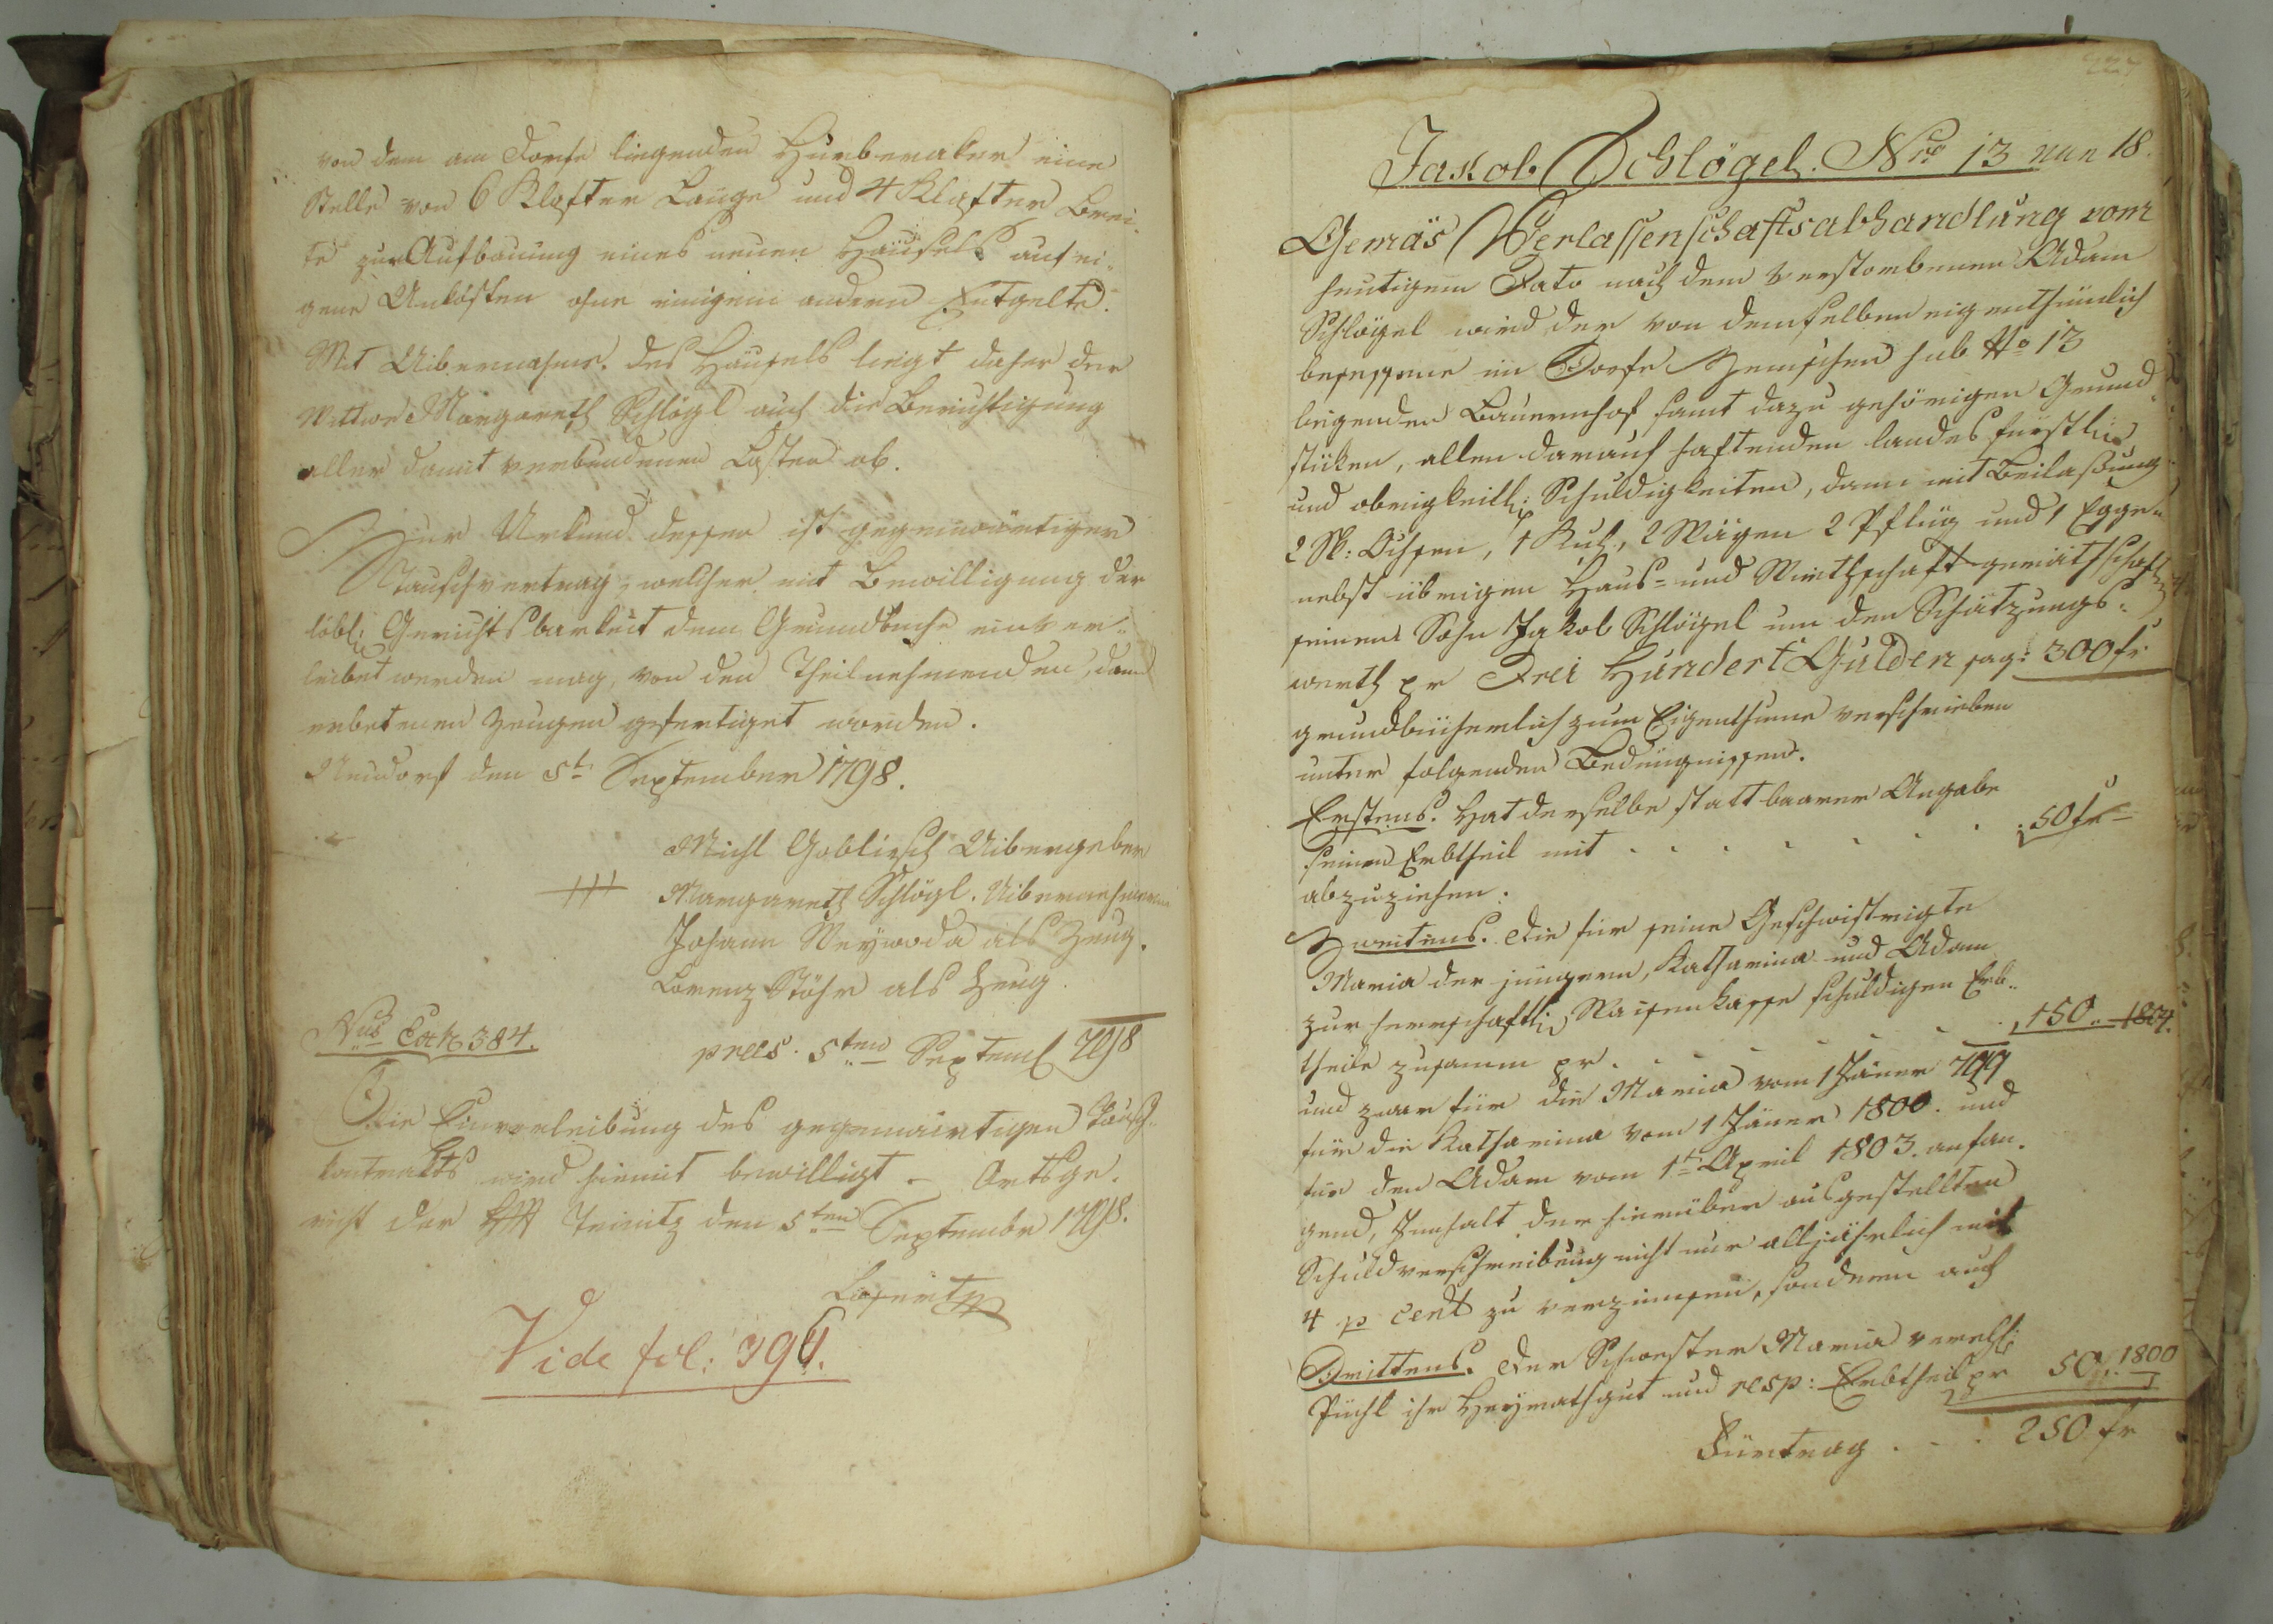 von dem am Dorfe liegenden Hurberaker eine
Stelle von 6 Klafter Länge und 4 Klafter Brei-
te zur Aufbauung eines neuen Häusels auf ei-
gene Unkosten ohne einigem andern Entgelte.
Mit Uibernahme des Häusels liegt daher der
Wittwe Margareth Schlögl auch die Berichtigung
aller damit verbundenen Lasten ob.
Zur Urkund dessen ist gegenwärtiger
Tauschvertrag, welcher mit Bewilligung der
löbl: Gerichtsbarkeit dem Grundbuche einver-
leibet werden mag, von den Theilnehmenden, dann
erbetenen Zeugen gefertiget worden.
Neudorf den 5t September 1798.
Michl Gobliersch Uibergeber
+++ Margareth Schlögl. Uibernehmerin
Johann Weywoda als Zeug.
Lorenz Stöhr als Zeug.
Nus Exh 384. præs. 5ten Septemb 798
Die Einverleibung des gegenwärtigen Tausch-
kontrakts wird hiemit bewilligt. Ortsge-
richt der Hft Teinitz den 5ten Septembr 1798.
Vide fol: 394.
Jakob Schlögel. Nro 13 nun 18.
Gemäs Verlassenschaftsabhandlung vom
heutigem Dato nach dem verstorbenen Adam
Schlögel wird der von demselben eigenthümlich
besessene im Dorfe sub No 13
liegenden Bauernhof samt dazu gehörigen Grund-
stüken, allen darauf haftenden landesfürstli:
und obrigkeitl: Schuldigkeiten, dann mit Beilaßung
2 St: Ochsen, 1 Kuh, 2 Wägen 2 Pflüg und 1 Eggen
nebst übrigen Haus- und Wirthschaftgeräthschaften
seinem Sohn Jakob Schlögel um den Schätzungs-
werth pr Drei Hundert Gulden sag: 300 fr
grundbücherlich zum Eigenthume verschrieben
unter folgenden Bedingnissen.
Erstens. Hat derselbe statt baarer Angabe
seinen Erbtheil mit . . . . . . 50 fr
abzuziehen.
Zweitens. Die für seine Geschwistrigte
Maria der jüngern, Katharina und Adam
zur herrschaftl: Waisenkasse schuldigen Erb-
theile zusamm pr . . . . . 150 .. 1804.
und zwar für die Maria vom 1 Jäner 799
für die Katharina vom 1 Jäner 1800. und
für den Adam vom 1t April 1803. anfan-
gend, Innhalt der hierüber ausgestellten
Schuldverschreibung nicht nur alljährlich mit
4 p Cent zu verzinnsen, sondern auch
Drittens. Der Schwester Maria verehl:
Püchl ihr Heyrathgut und resp: Erbtheil pr 50 .. 1800
Fürtrag . . . 250 fr